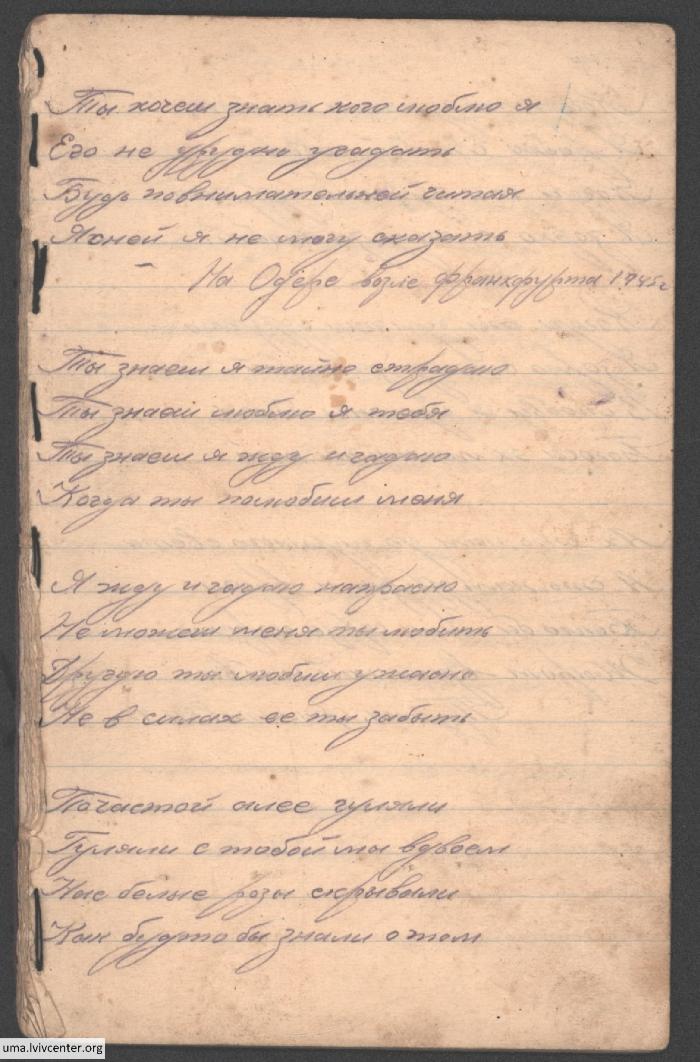 Ты хочеш знать кого люблю я
Его не трудно угадать
Будь повнимательней читая
Ясней я не могу сказать
На Одере возле Франкфурта 1945г
Ты знаеш я тайно страдаю
Ты знаеш люблю я тебя
Ты знаеш я жду и гадаю
Когда ты полюбиш меня
Я жду и гадаю напрасно
Не можеш меня ты любить
Другую ты любиш ужасно
Не в силах ее ты забыть
Почастой алее гуляли
Гуляли с тобой мы вдвоем
Нас белые розы скрывали
Как будто бы знали о том
uma.lvivcenter.org